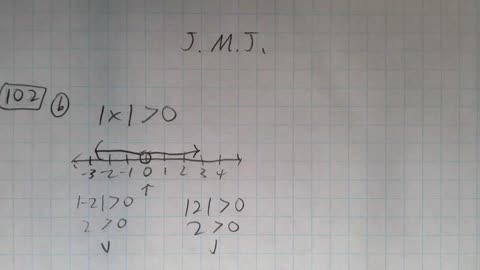 J. M. J.
102 b
|x| > 0
-3 -2 -1 0 1 2 3 4
|-2| > 0 |2| > 0
2 > 0 2 > 0